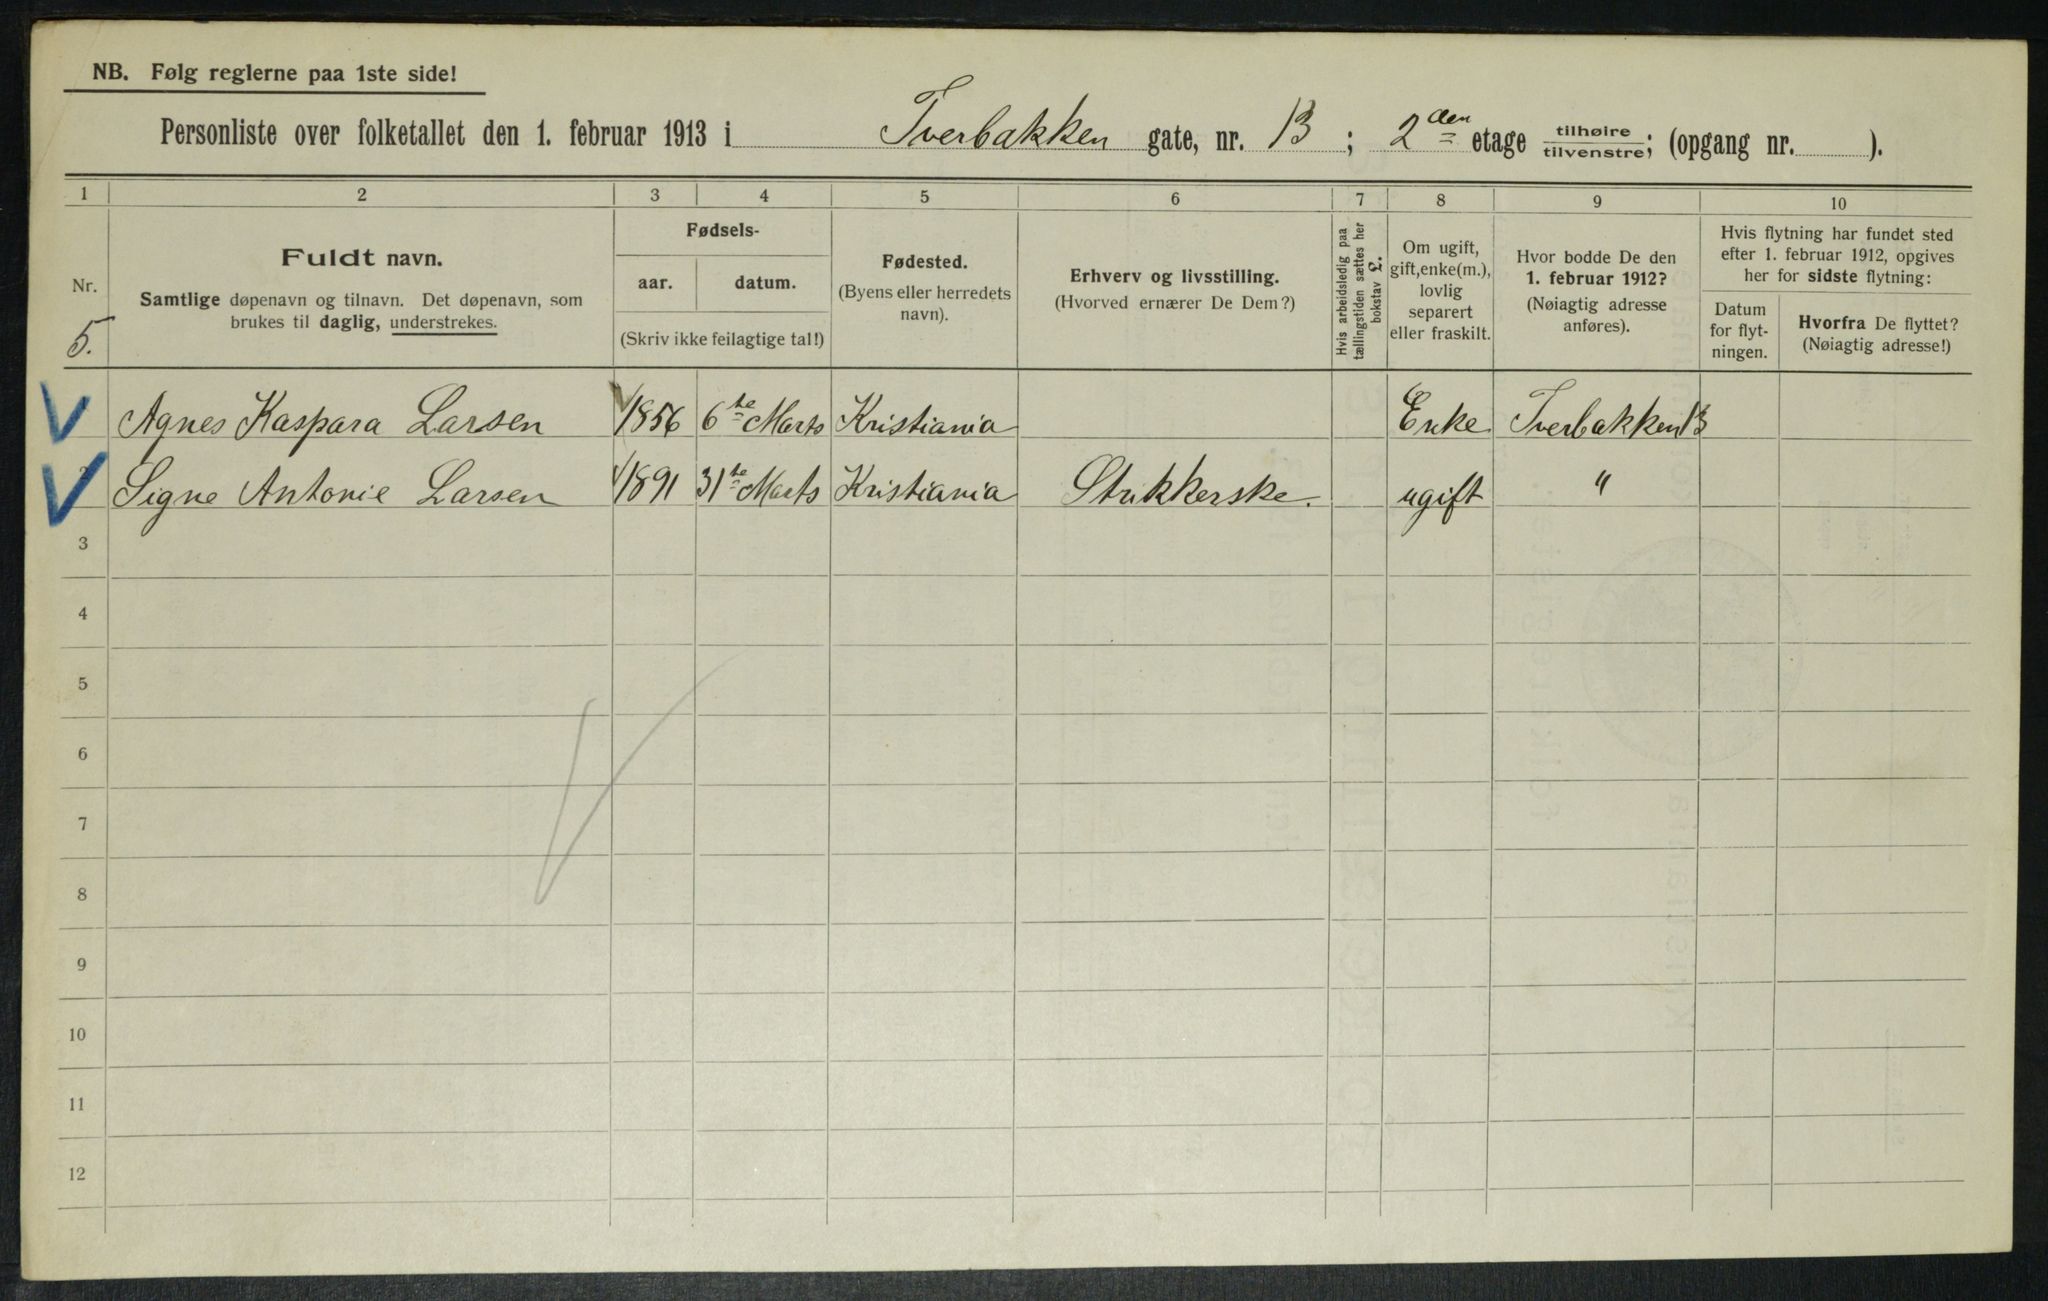 NB. Følg reglerne paa 1ste side!
Personliste over folketallet den 1. februar 1913 i Tverbakken gate, nr. 13; 2den etage tilhøire tilvenstre; (opgang nr. ).
1 2 3 4 5 6 7 8 9 10
Nr.
5.
Fuldt navn.
Samtlige døpenavn og tilnavn. Det døpenavn, som
brukes til daglig, understrekes.
Fødsels-
aar. datum.
(Skriv ikke feilagtige tal!)
Fødested.
(Byens eller herredets
navn).
Erhverv og livsstilling.
(Hvorved ernærer De Dem?)
Hvis arbeidsledig paa
tællingstiden sættes her
bokstav L.
Om ugift,
gift, enke(m.),
lovlig
separert
eller fraskilt.
Hvor bodde De den
1. februar 1912?
(Nøiagtig adresse
anføres).
Hvis flytning har fundet sted
efter 1. februar 1912, opgives
her for sidste flytning:
Datum
for flyt-
ningen.
Hvorfra De flyttet?
(Nøiagtig adresse!)
Agnes Kaspara Larsen 1856 6te Marts Kristiania Enke Tverbakken 13
2 Signe Antonie Larsen 1891 31te Marts Kristiania Strikkerske. ugift "
3
4
5
6
7
8
9
10
11
12